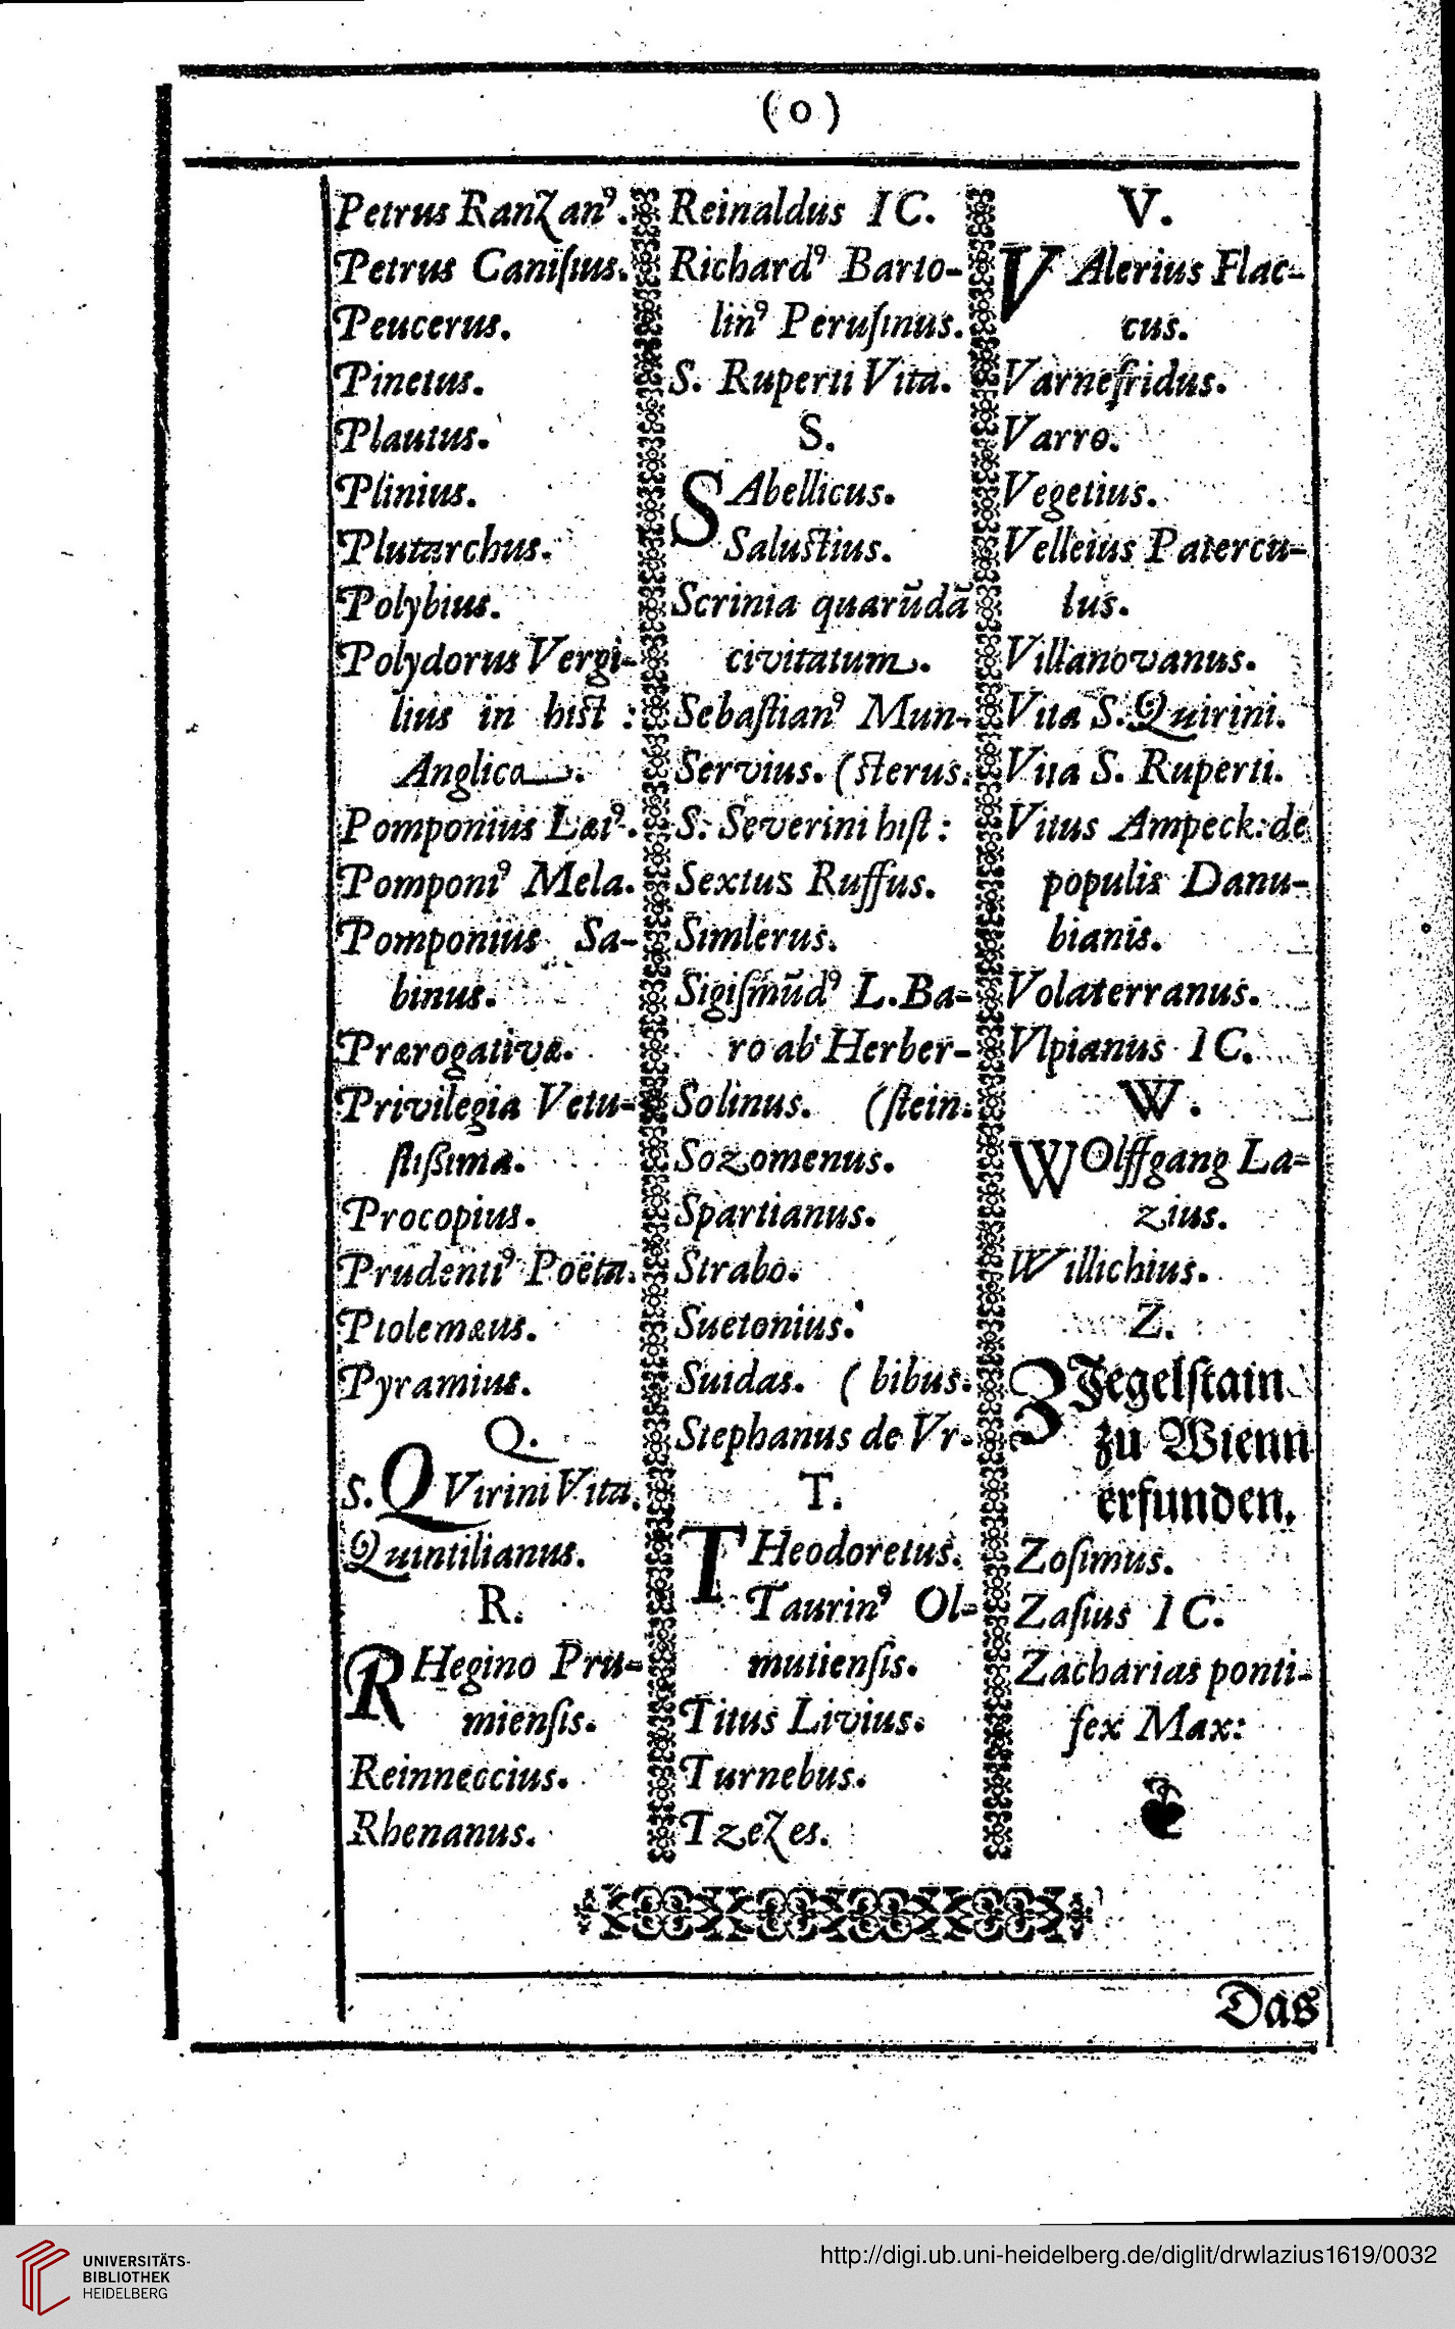 (o)
Petrus Ranzanꝰ.
Petrus Caniſius.
Peucerus.
Pinetus.
Plautus.
Plinius.
Plutarchus.
Polybius.
Polydorus Vergi-
lius in hiſt :
Anglica.
Pomponius Lætꝰ.
Pomponiꝰ Mela.
Pomponius Sa-
binus.
Prærogativæ.
Privilegia Vetu-
ſtißima.
Procopius.
Prudentiꝰ Poëta.
Ptolemæus.
Pyramius.
Q.
S. QVirini Vita.
Quintilianus.
R.
RHegino Pru-
mienſis.
Reinneccius.
Rhenanus.
Reinaldus IC.
Richardꝰ Barto-
linꝰ Peruſinus.
S. Ruperti Vita.
S.
SAbellicus.
Saluſtius.
Scrinia quarũdã
civitatum.
Sebaſtianꝰ Mun-
Servius. (ſterus.
S. Severini hiſt :
Sextus Ruffus.
Simlerus.
Sigiſmũdꝰ L. Ba-
ro ab Herber-
Solinus. (ſtein.
Sozomenus.
Spartianus.
Strabo.
Suetonius.
Suidas. ( bibus.
Stephanus de Vr-
T.
THeodoretus.
Taurinꝰ Ol-
mutienſis.
Titus Livius.
Turnebus.
Tzezes.
V.
VAlerius Flac-
cus.
Varnefridus.
Varro.
Vegetius.
Velleius Patercu-
lus.
Villanovanus.
Vita S. Quirini.
Vita S. Ruperti.
Vitus Ampeck: de
populis Danu-
bianis.
Volaterranus.
Vlpianus IC.
W.
WOlffgang La-
zius.
Willichius.
Z.
ZIegelſtain
zu Wienn
erfunden.
Zoſimus.
Zaſius IC.
Zacharias ponti-
fex Max:
Das
UNIVERSITÄTS-
BIBLIOTHEK
HEIDELBERG
http://digi.ub.uni-heidelberg.de/diglit/drwlazius1619/0032